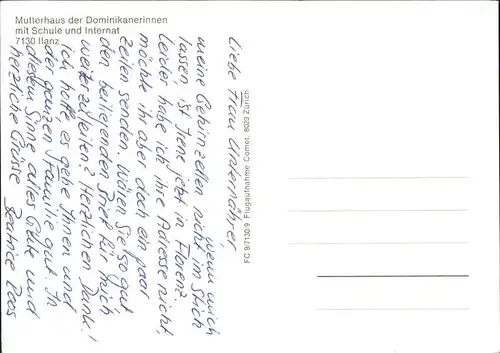 Mutterhaus der Dominikanerinnen
mit Schule und Internat
7130 Ilanz
Liebe Frau Unternährer
wenn mich
meine Gehirnzellen nicht im Stich
lassen, ist Irene jetzt in Florenz.
Leider habe ich ihre Adresse nicht,
möchte ihr aber doch ein paar
Zeilen senden. Wären Sie so gut
den beiliegenden Brief für mich
weiterzuleiten? Herzlichen Dank!
Ich hoffe es gehe Ihnen und
der ganzen Familie gut. In
diesem Sinne alles Gute und
herzliche Grüsse Beatrice Roos
FC 9/7130/9 Flugaufnahme Comet, 8023 Zürich